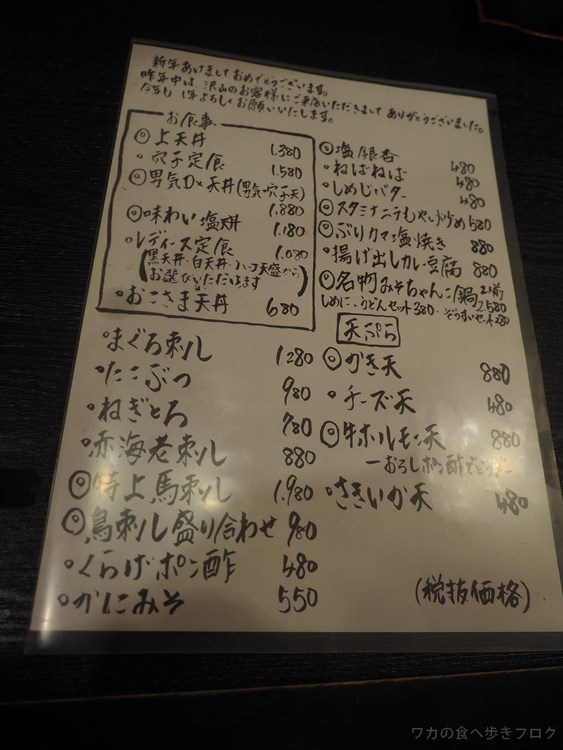 新年あけましておめでとうございます。
昨年中は、沢山のお客様にご来店いただきまして ありがとうございました。
今年も 1年よろしくお願いいたします。
お食事
◎上天丼 1.380
・穴子定食 1.580
◎男気Dx天丼(男気・穴子天) 1.880
◎味わい塩天丼 1.180
・レディース定食 1.080
(黒天丼・白天丼・ハーフ天盛から
お選びいただけます)
・おこさま天丼 680
・まぐろ刺し 1.280
・たこぶつ 980
・ねぎとろ 780
・赤海老刺し 880
◎特上馬刺し 1.980
◎鳥刺し盛り合わせ 980
・くらげポン酢 480
・かにみそ 550
◎塩銀杏 480
・ねばねば 480
・しめじバター 480
◎スタミナニラもやし炒め 580
◎ぶりカマ塩焼き 880
・揚げ出しカレー豆腐 880
◎名物みそちゃんこ鍋 2人前 2.580
しめに、うどんセット380・ぞうすいセット280
天ぷら
◎かき天 880
・チーズ天 480
◎牛ホルモン天 880
ーおろしポン酢でどうぞー
・さきいか天 480
(税抜価格)
ワカの食べ歩きブログ